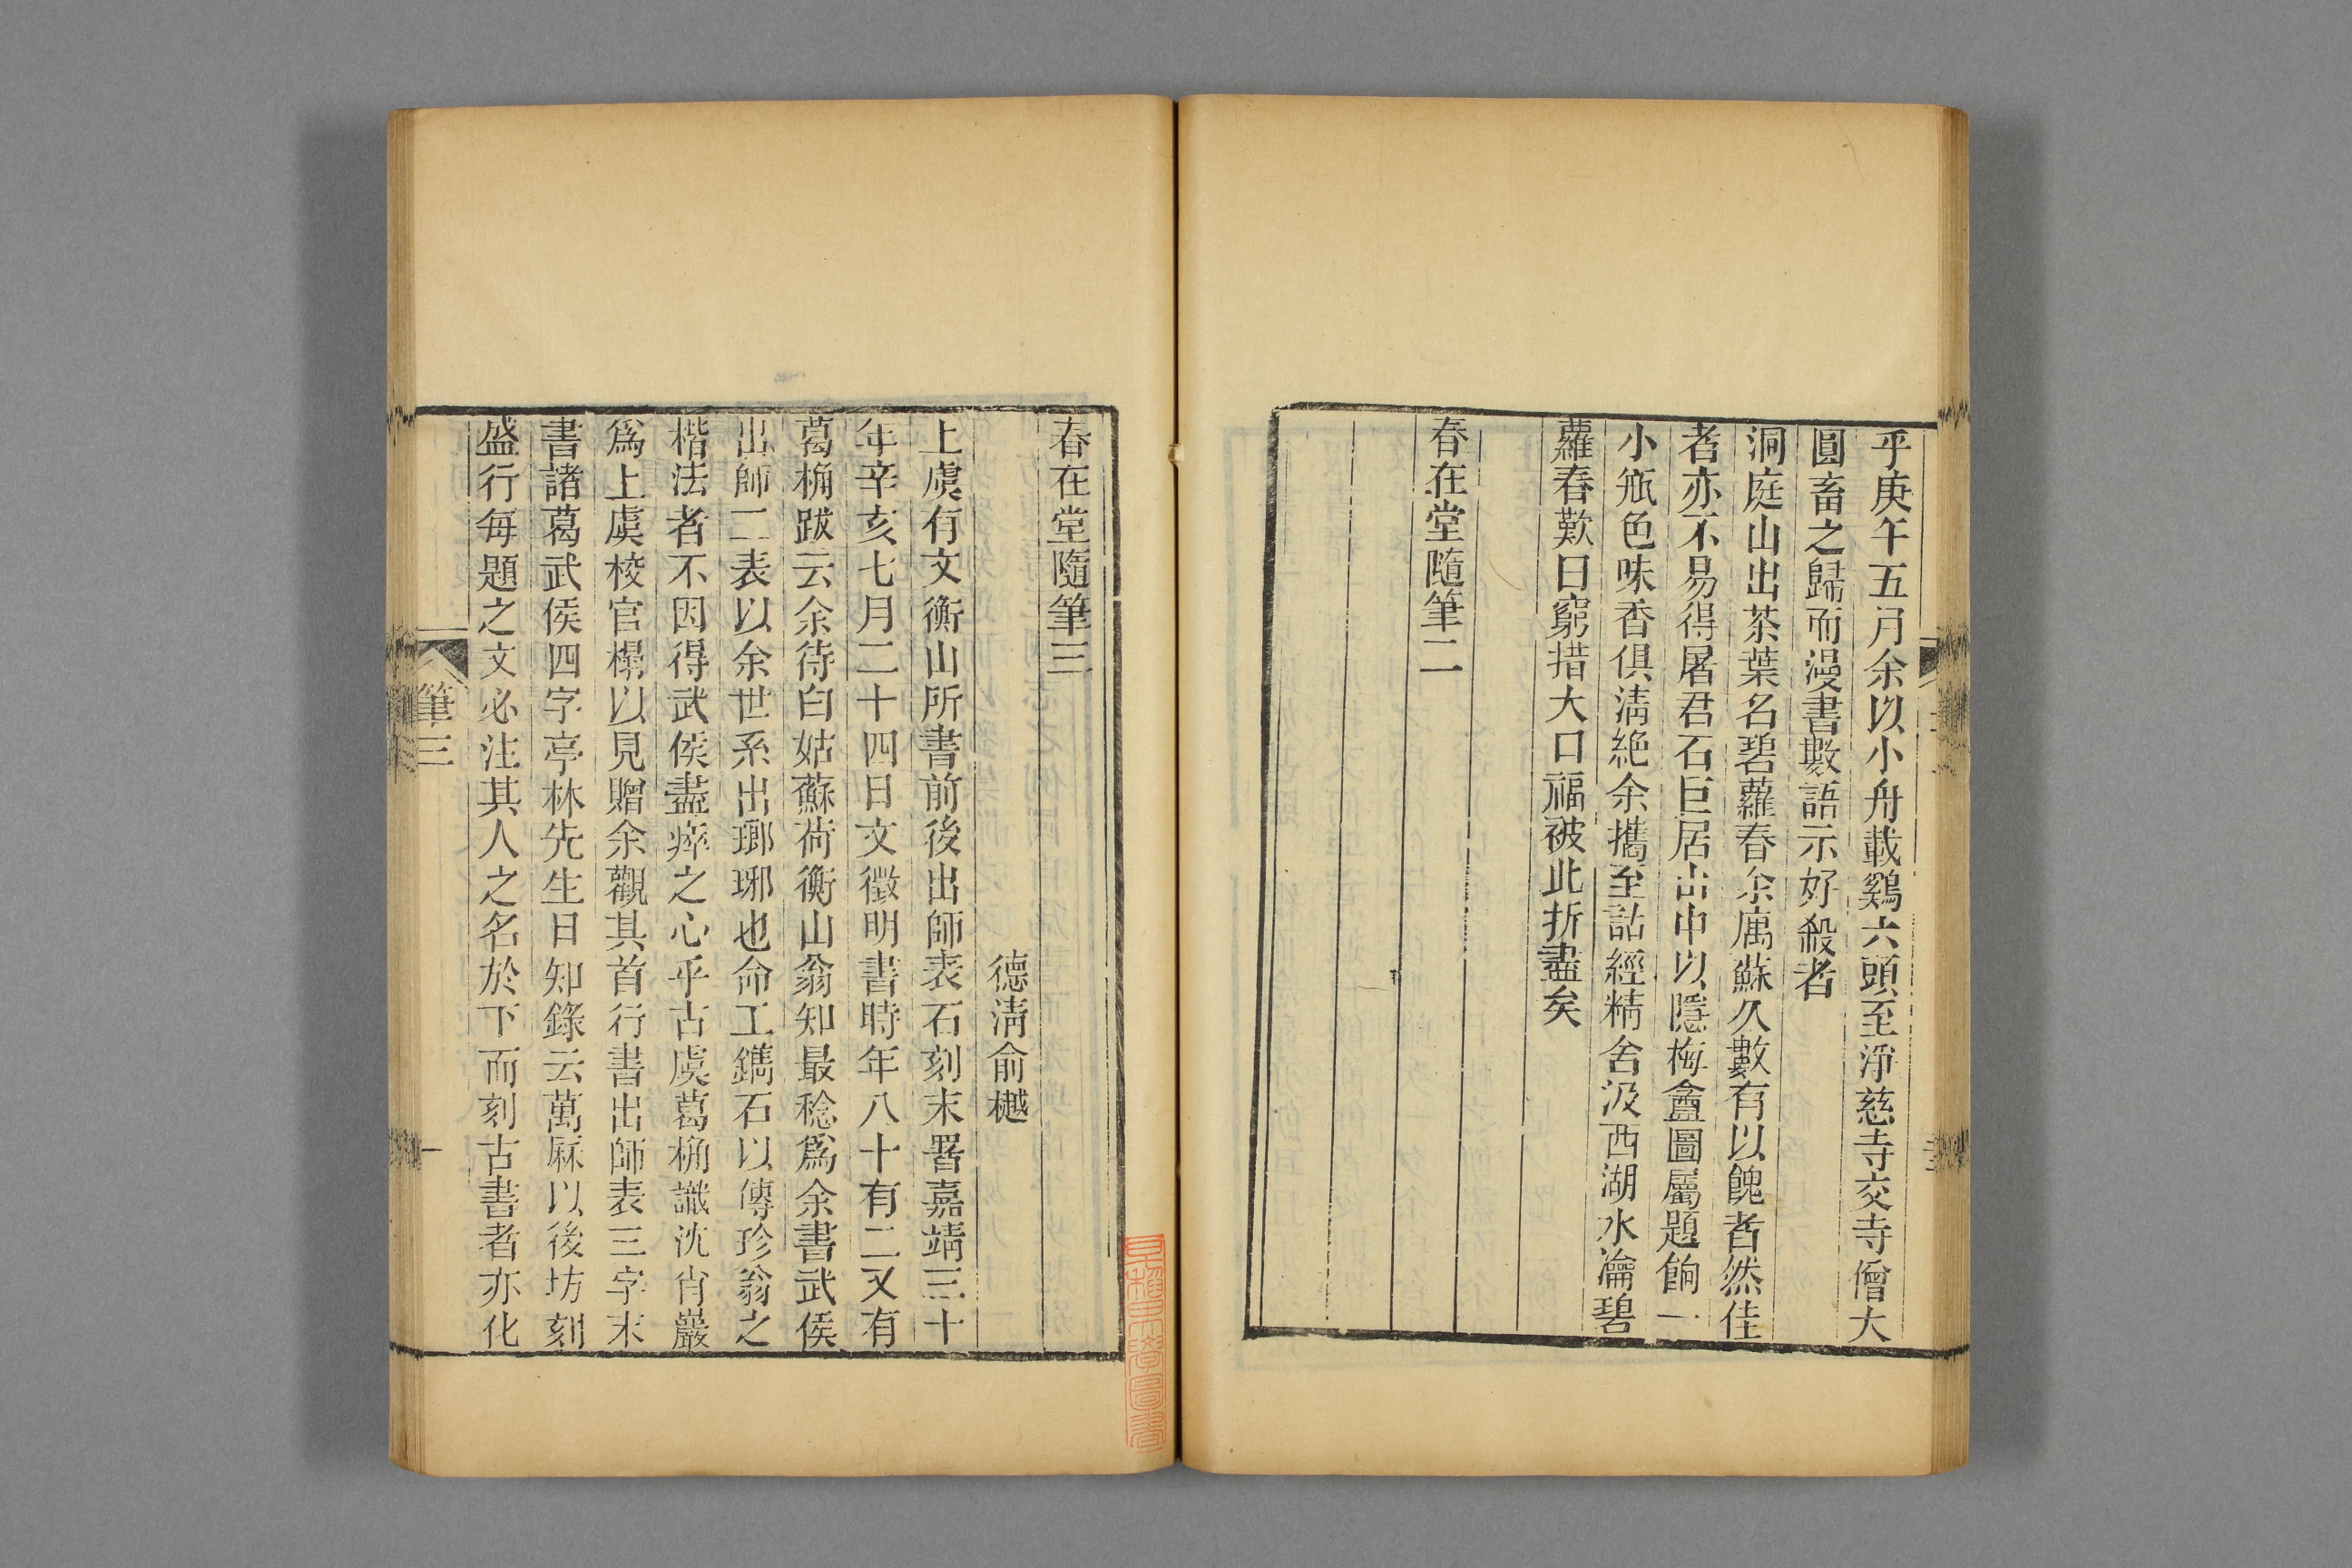 乎庚午五月余以小舟載鷄六頭至淨慈寺交寺僧大
圓畜之歸而漫書數語示好殺者
洞庭山出茶葉名碧蘿春余寓蘇久數有以餽者然佳
者亦不易得屠君石巨居山中以隱梅盦圖屬題餉一
小瓶色味香俱淸絶余攜至詁經精舍汲西湖水瀹碧
蘿春歎曰窮措大口福被此折盡矣
春在堂隨筆二
春在堂隨筆三
德淸俞樾
上虞有文衡山所書前後出師表石刻末署嘉靖三十
年辛亥七月二十四日文徵明書時年八十有二又有
葛桷跋云余待白姑蘇荷衡山翁知最稔爲余書武侯
出師二表以余世系出瑯琊也命工鐫石以傳珍翁之
楷法者不因得武侯盡瘁之心乎古虞葛桷識沈肖巖
爲上虞校官榻以見贈余觀其首行書出師表三字末
書諸葛武侯四字亭林先生日知錄云萬厤以後坊刻
盛行每題之文必注其人之名於下而刻古書者亦化
筆三
一